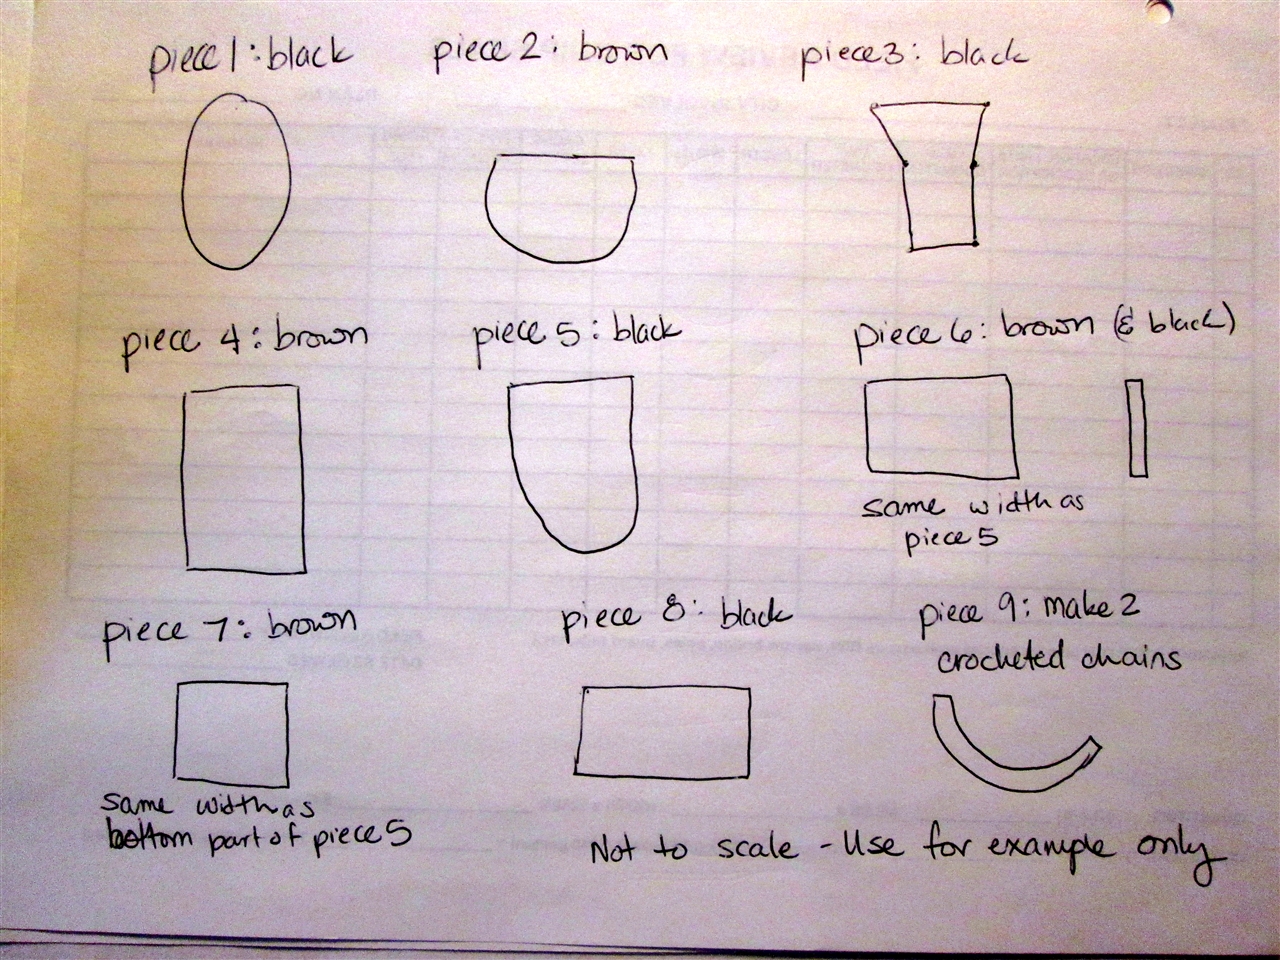 piece 1: black
piece 2: brown
piece 3: black
piece 4: brown
piece 5: black
piece 6: brown (& black)
same width as
piece 5
piece 7: brown
same width as
bottom part of piece 5
piece 8: black
piece 9: make 2
crocheted chains
Not to scale - Use for example only